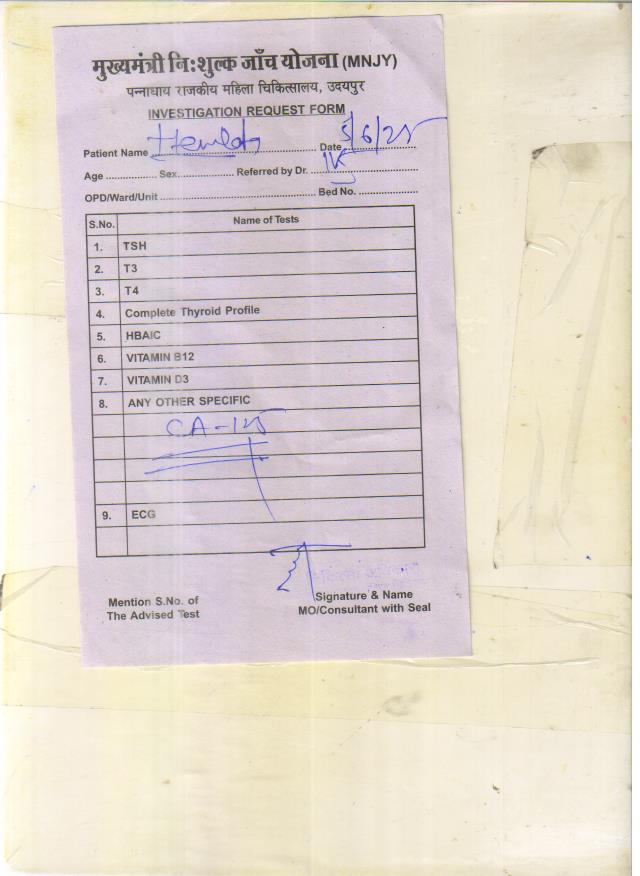 मुख्यमंत्री नि:शुल्क जाँच योजना (MNJY)
पन्नाधाय राजकीय महिला चिकित्सालय, उदयपुर
INVESTIGATION REQUEST FORM
Patient Name ........ Date 5/6/25
Age ........ Sex ........ Referred by Dr. ........
OPD/Ward/Unit ........ Bed No. ........
S.No. Name of Tests
1. TSH
2. T3
3. T4
4. Complete Thyroid Profile
5. HBAIC
6. VITAMIN B12
7. VITAMIN D3
8. ANY OTHER SPECIFIC
CA-125
9. ECG
Mention S.No. of
The Advised Test
Signature & Name
MO/Consultant with Seal